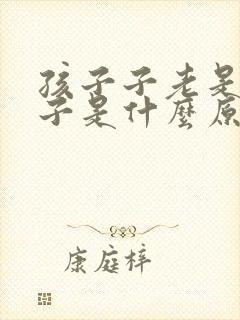 孩子子老是
子是什麼原
康庭梓